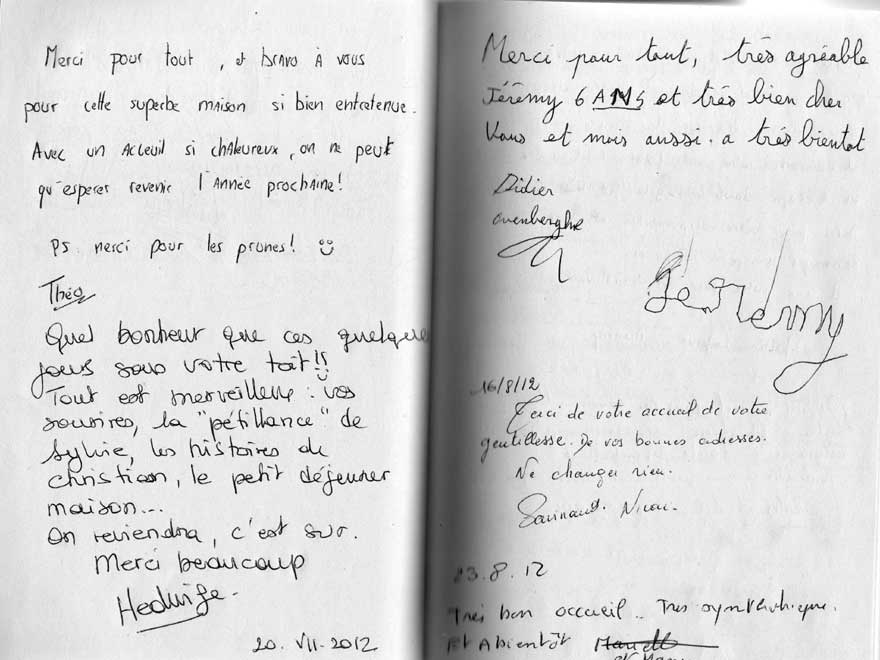 Merci pour tout, et bravo à vous
pour cette superbe maison si bien entretenue.
Avec un accleuil si chaleureux, on ne peut
qu'esperer revenir l'année prochaine!
PS. merci pour les prunes!
Théo
Quel bonheur que ces quelques
jours sous votre toit!!
Tout est merveilleux : vos
sourires, la "pétillance" de
Sylvie, les histoires de
christian, le petit déjeuner
maison...
On reviendra, c'est sur.
Merci beaucoup
Hedwige.
20. VII. 2012
Merci pour tout, très agréable
Jérémy 6 ANS et très bien cher
Vous et mois aussi. a très bientot
Didier
Jérémy
16/8/12
Merci de votre accueil de votre
gentillesse. De vos bonnes adresses.
Ne changer rien.
23.8.12
Très bon accueil.. Très sympathique.
Et A bientôt